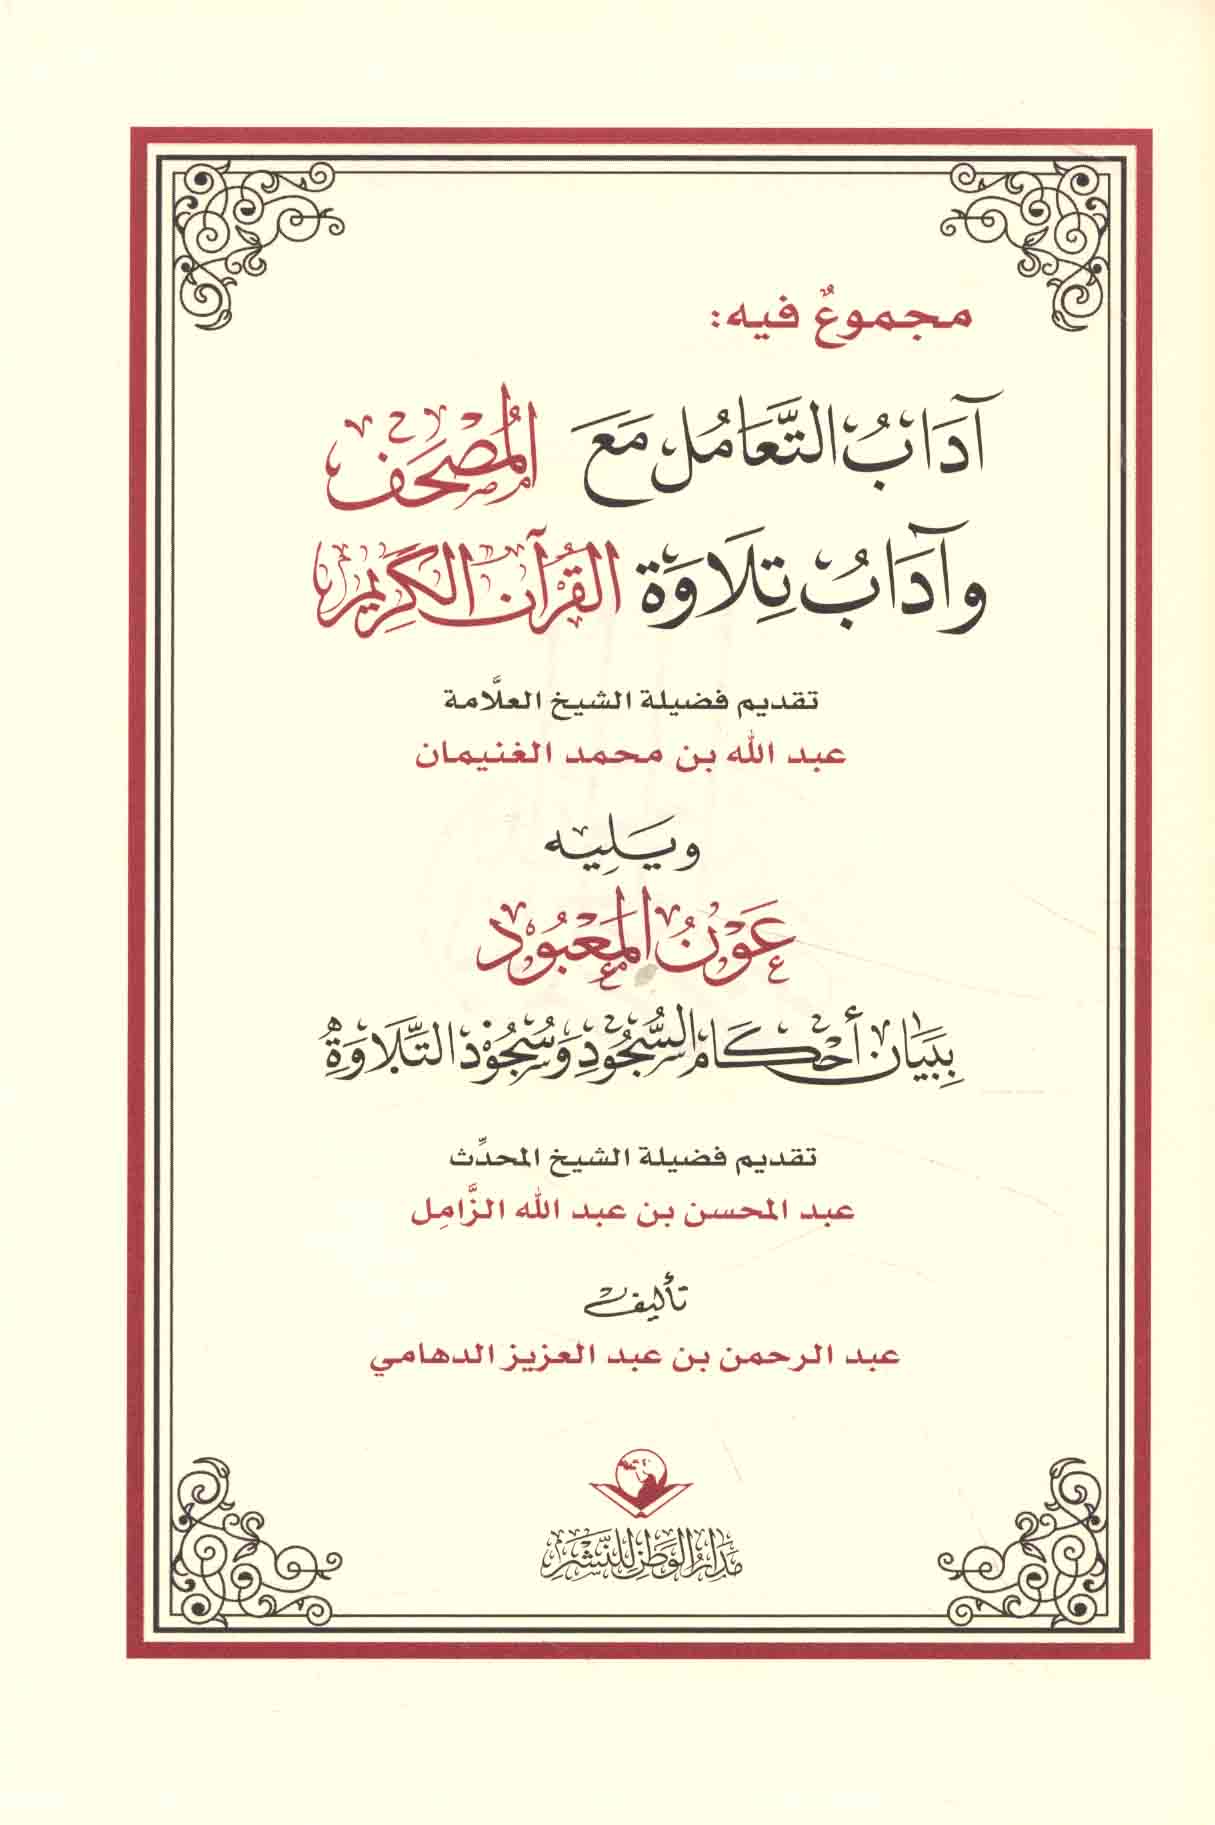 مجموعٌ فيه:
آدَابُ التَّعَامُلِ مَعَ المُصْحَفِ
وآدَابُ تِلَاوَةِ القُرْآنِ الكَرِيمِ
تقديم فضيلة الشيخ العلَّامة
عبد الله بن محمد الغنيمان
ويَلِيه
عَوْنُ المَعْبُودِ
بِبَيَانِ أَحْكَامِ السُّجُودِ وَسُجُودِ التِّلَاوَةِ
تقديم فضيلة الشيخ المحدِّث
عبد المحسن بن عبد الله الزَّامِل
تأليف
عبد الرحمن بن عبد العزيز الدهامي
مَدَارُ الوَطَنِ لِلنَّشْرِ